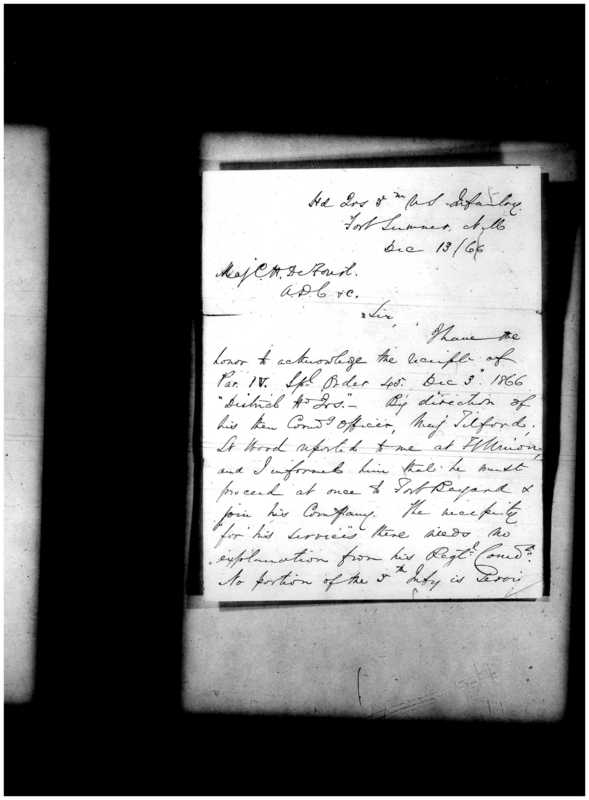 Hd Qrs 5th US Infantry
Fort Sumner, N.M
Dec 13/66
Maj C. H. De Forest.
A.D.C &c.
Sir,
I have the
honor to acknowledge the receipt of
Par. IV. Spl Order 45. Dec 3d 1866
"District Hd Qrs."— By direction of
his then Comdg Officer, Maj Tilford,
Lt Wood reported to me at Ft Union,
and I informed him that he must
proceed at once to Fort Bayard &
join his Company. The necessity
for his services there needs no
explanation from his Regtl Comdr.
No portion of the 5th Infy is